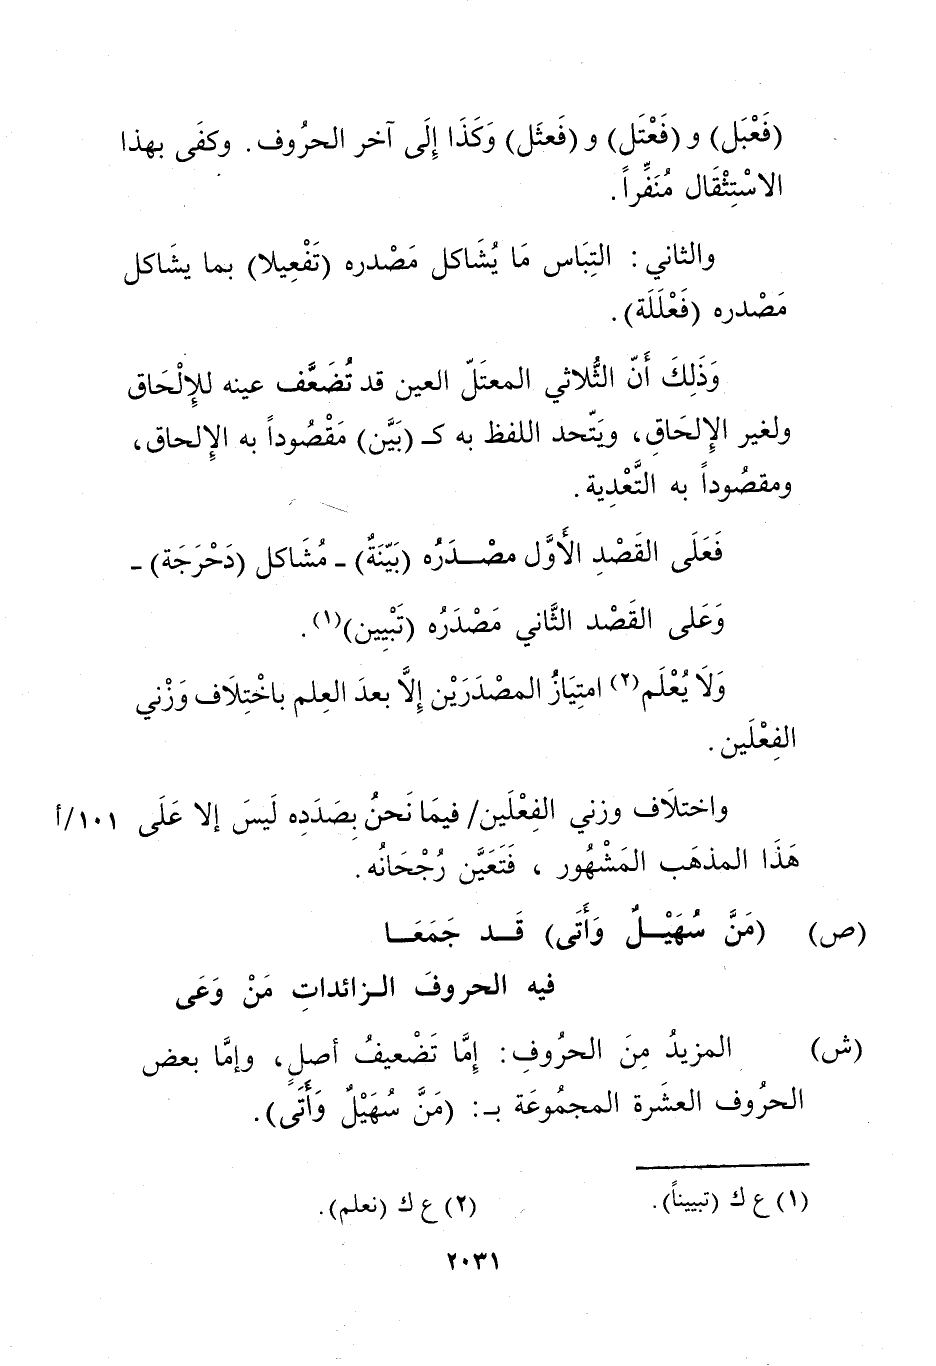 (فَعْبَل) و (فَعْتَل) و (فَعثَل) وَكَذَا إِلَى آخر الحرُوف. وكفَى بهذا
الاسْتِثْقَال مُنَفِّراً.
والثاني: التِبَاس مَا يُشَاكل مَصْدره (تَفْعِيلا) بما يشاكل
مَصْدره (فَعْلَلَة).
وَذَلِكَ أَنّ الثُّلاثي المعتَلّ العين قد تُضَعَّف عينه للإِلْحَاق
ولغير الإِلحَاقِ، ويَتّحد اللفظ به كـ (بَيَّن) مَقْصُوداً به الإِلحاق،
ومقصُوداً به التَّعْدِية.
فَعَلَى القَصْدِ الأَوَّل مصْـدَرُه (بَيّنَةٌ) ـ مُشَاكل (دَحْرَجَة) ـ
وَعَلى القَصْد الثَّاني مَصْدَرُه (تَبْيِين)(١).
وَلَا يُعْلَم(٢) امتِيَازُ المصْدَرَيْن إلاَّ بعدَ العِلم باخْتِلَاف وَزْني
الفِعْلَين.
واختلَاف وزني الفِعْلَين/ فيمَا نَحنُ بِصَدَدِه لَيسَ إلا عَلَى ١٠١/أ
هَذَا المذهَب المَشْهُور ، فَتَعَيَّن رُجْحَانُه.
(ص) (مَنَّ سُهَيْـلٌ وَأَتَى) قَـد جَمَعَـا
فيه الحروفَ الـزائداتِ مَنْ وَعَى
(ش) المزيدُ مِنَ الحرُوفِ: إِمَّا تَضْعيفُ أصلٍ، وإمَّا بعض
الحرُوف العشَرة المجمُوعَة بـ: (مَنَّ سُهَيْلٌ وَأَتَى).
(١) ع ك (تبييناً).
(٢) ع ك (نعلم).
٢٠٣١